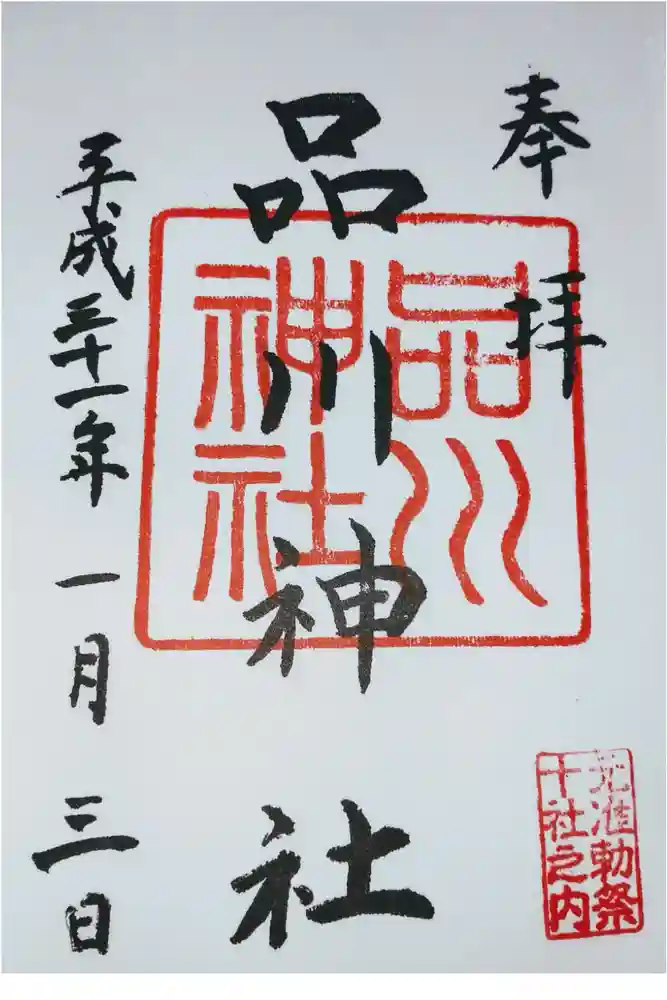 奉拝
品川神社
品川
神社
平成三十一年一月三日
元准勅祭
十社之内